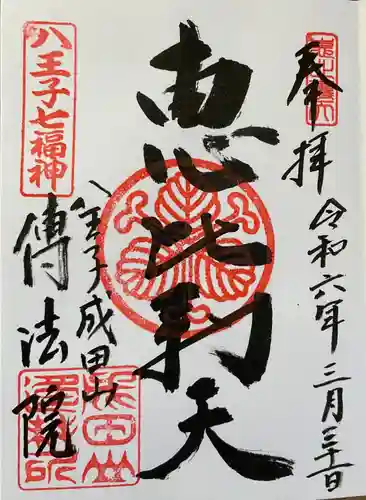 奉拝
令和六年三月三十一日
恵比寿天
八王子成田山
傳法院
八王子七福神